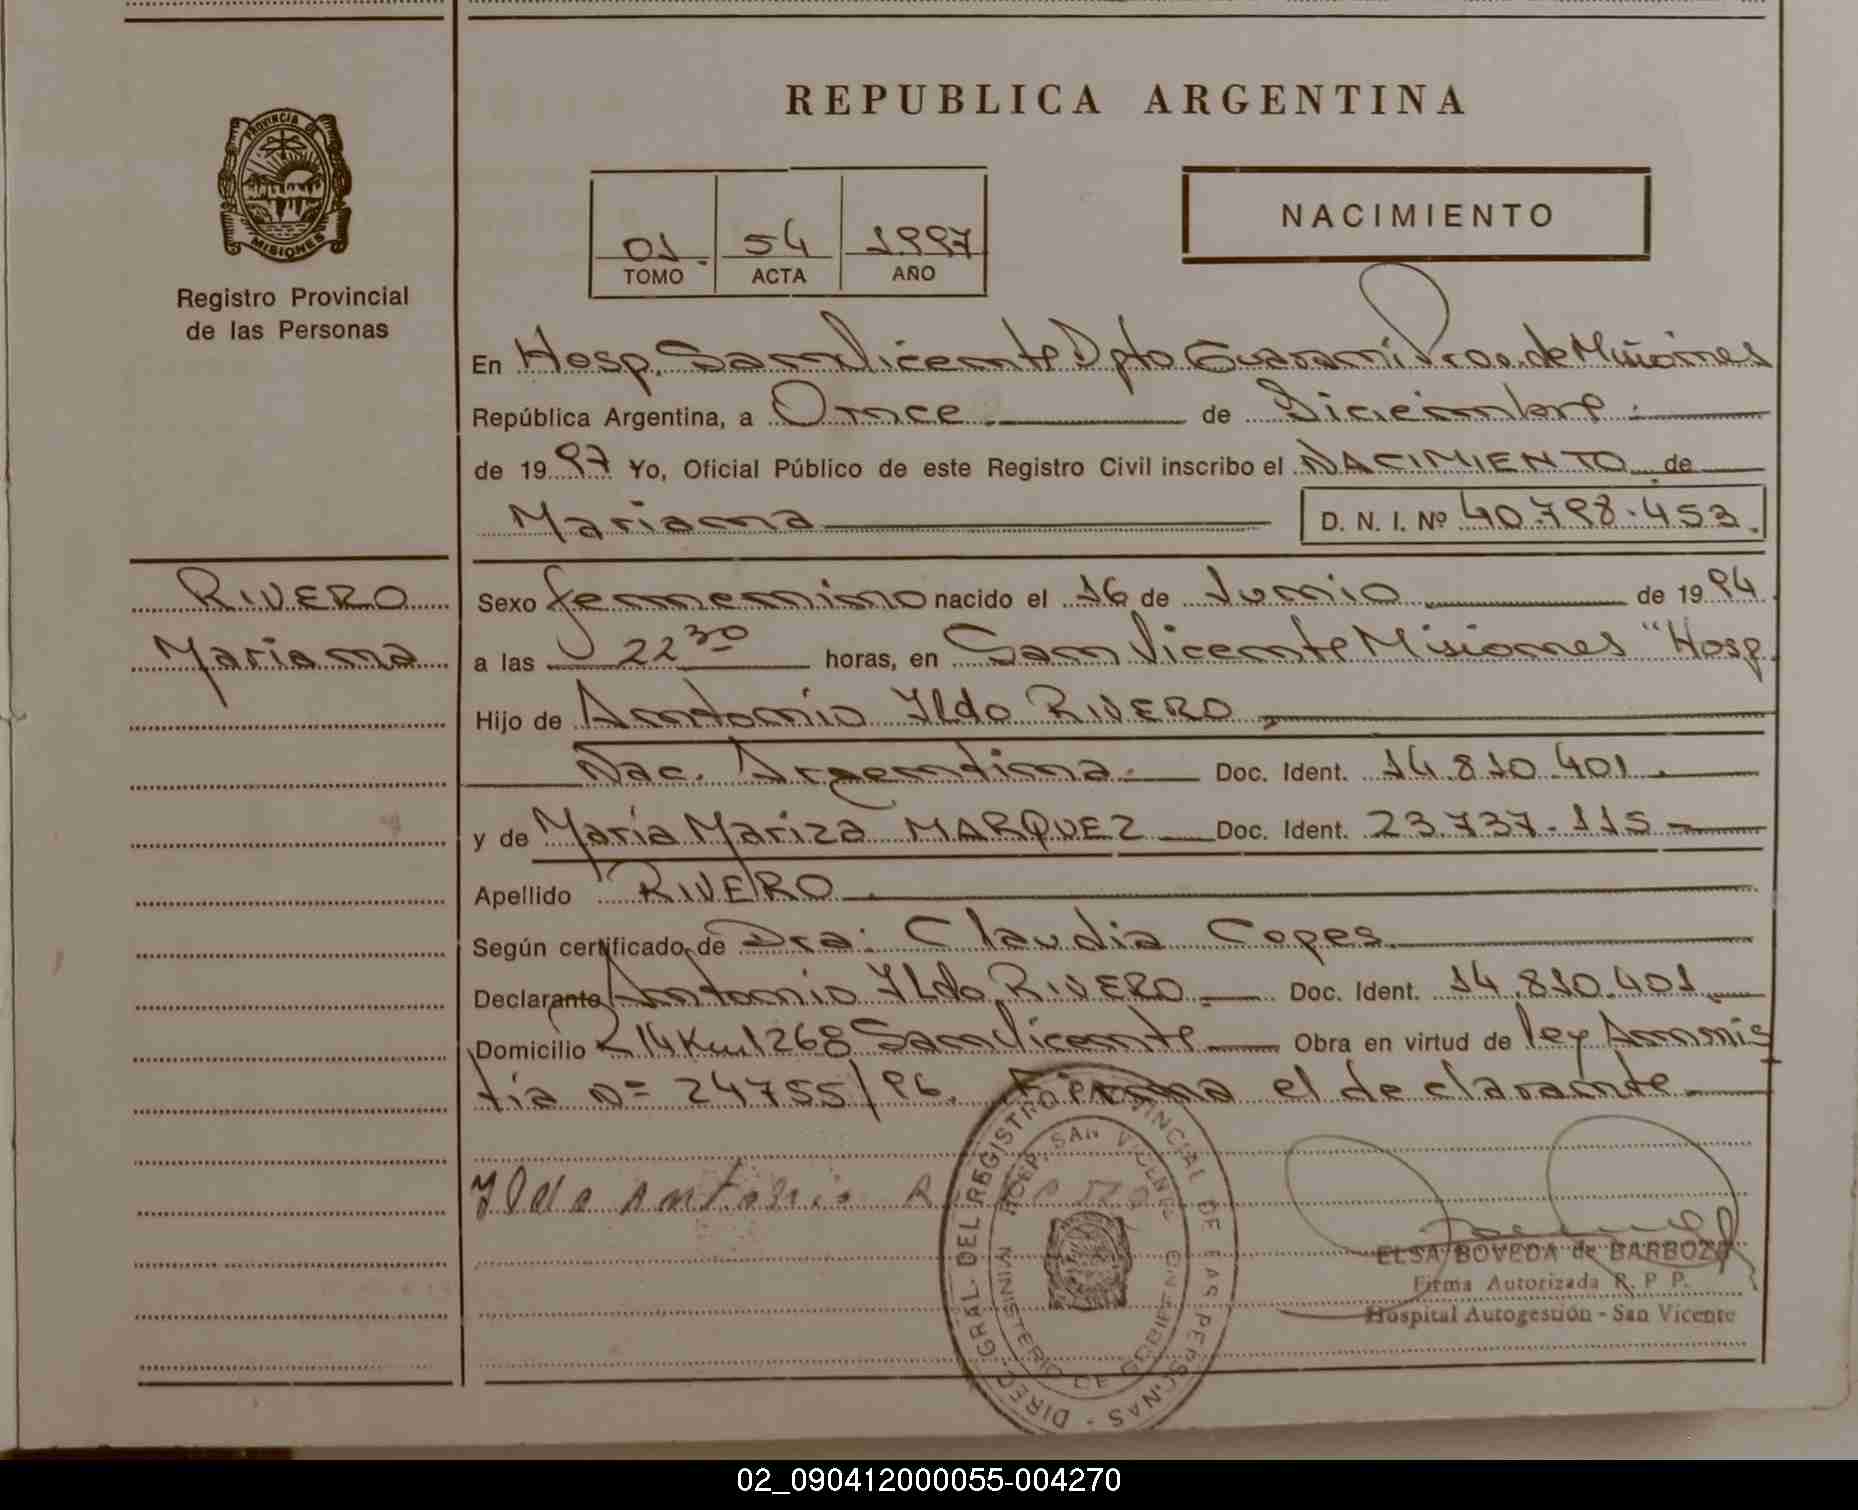 REPUBLICA ARGENTINA
PROVINCIA DE
MISIONES
Registro Provincial
de las Personas
01 54 1997
TOMO ACTA AÑO
NACIMIENTO
En Hosp. San Vicente Dpto Guarani Prov. de Misiones
República Argentina, a Once de Diciembre
de 1997 Yo, Oficial Público de este Registro Civil inscribo el NACIMIENTO de
Mariana D. N. I. Nº 40.798.453.
RIVERO
Mariana
Sexo femenino nacido el 16 de Junio de 1994
a las 22 30 horas, en San Vicente Misiones "Hosp.
Hijo de Antonio Ildo RIVERO
Nac. Argentina. Doc. Ident. 14.810.401.
y de María Mariza MARQUEZ Doc. Ident. 23.737.115
Apellido RIVERO
Según certificado de Dra: Claudia Copes
Declarante Antonio Ildo RIVERO Doc. Ident. 14.810.401
Domicilio R 14 Km 1268 San Vicente Obra en virtud de ley Amnis
tía Nº 24755/96. Firma el declarante
Ildo Antonio
DIREC. GRAL. DEL REGISTRO PROVINCIAL DE LAS PERSONAS
HOSP. SAN VICENTE
MINISTERIO DE GOBIERNO
ELSA BOVEDA de BARBOZA
Firma Autorizada R. P. P.
Hospital Autogestión - San Vicente
02_090412000055-004270